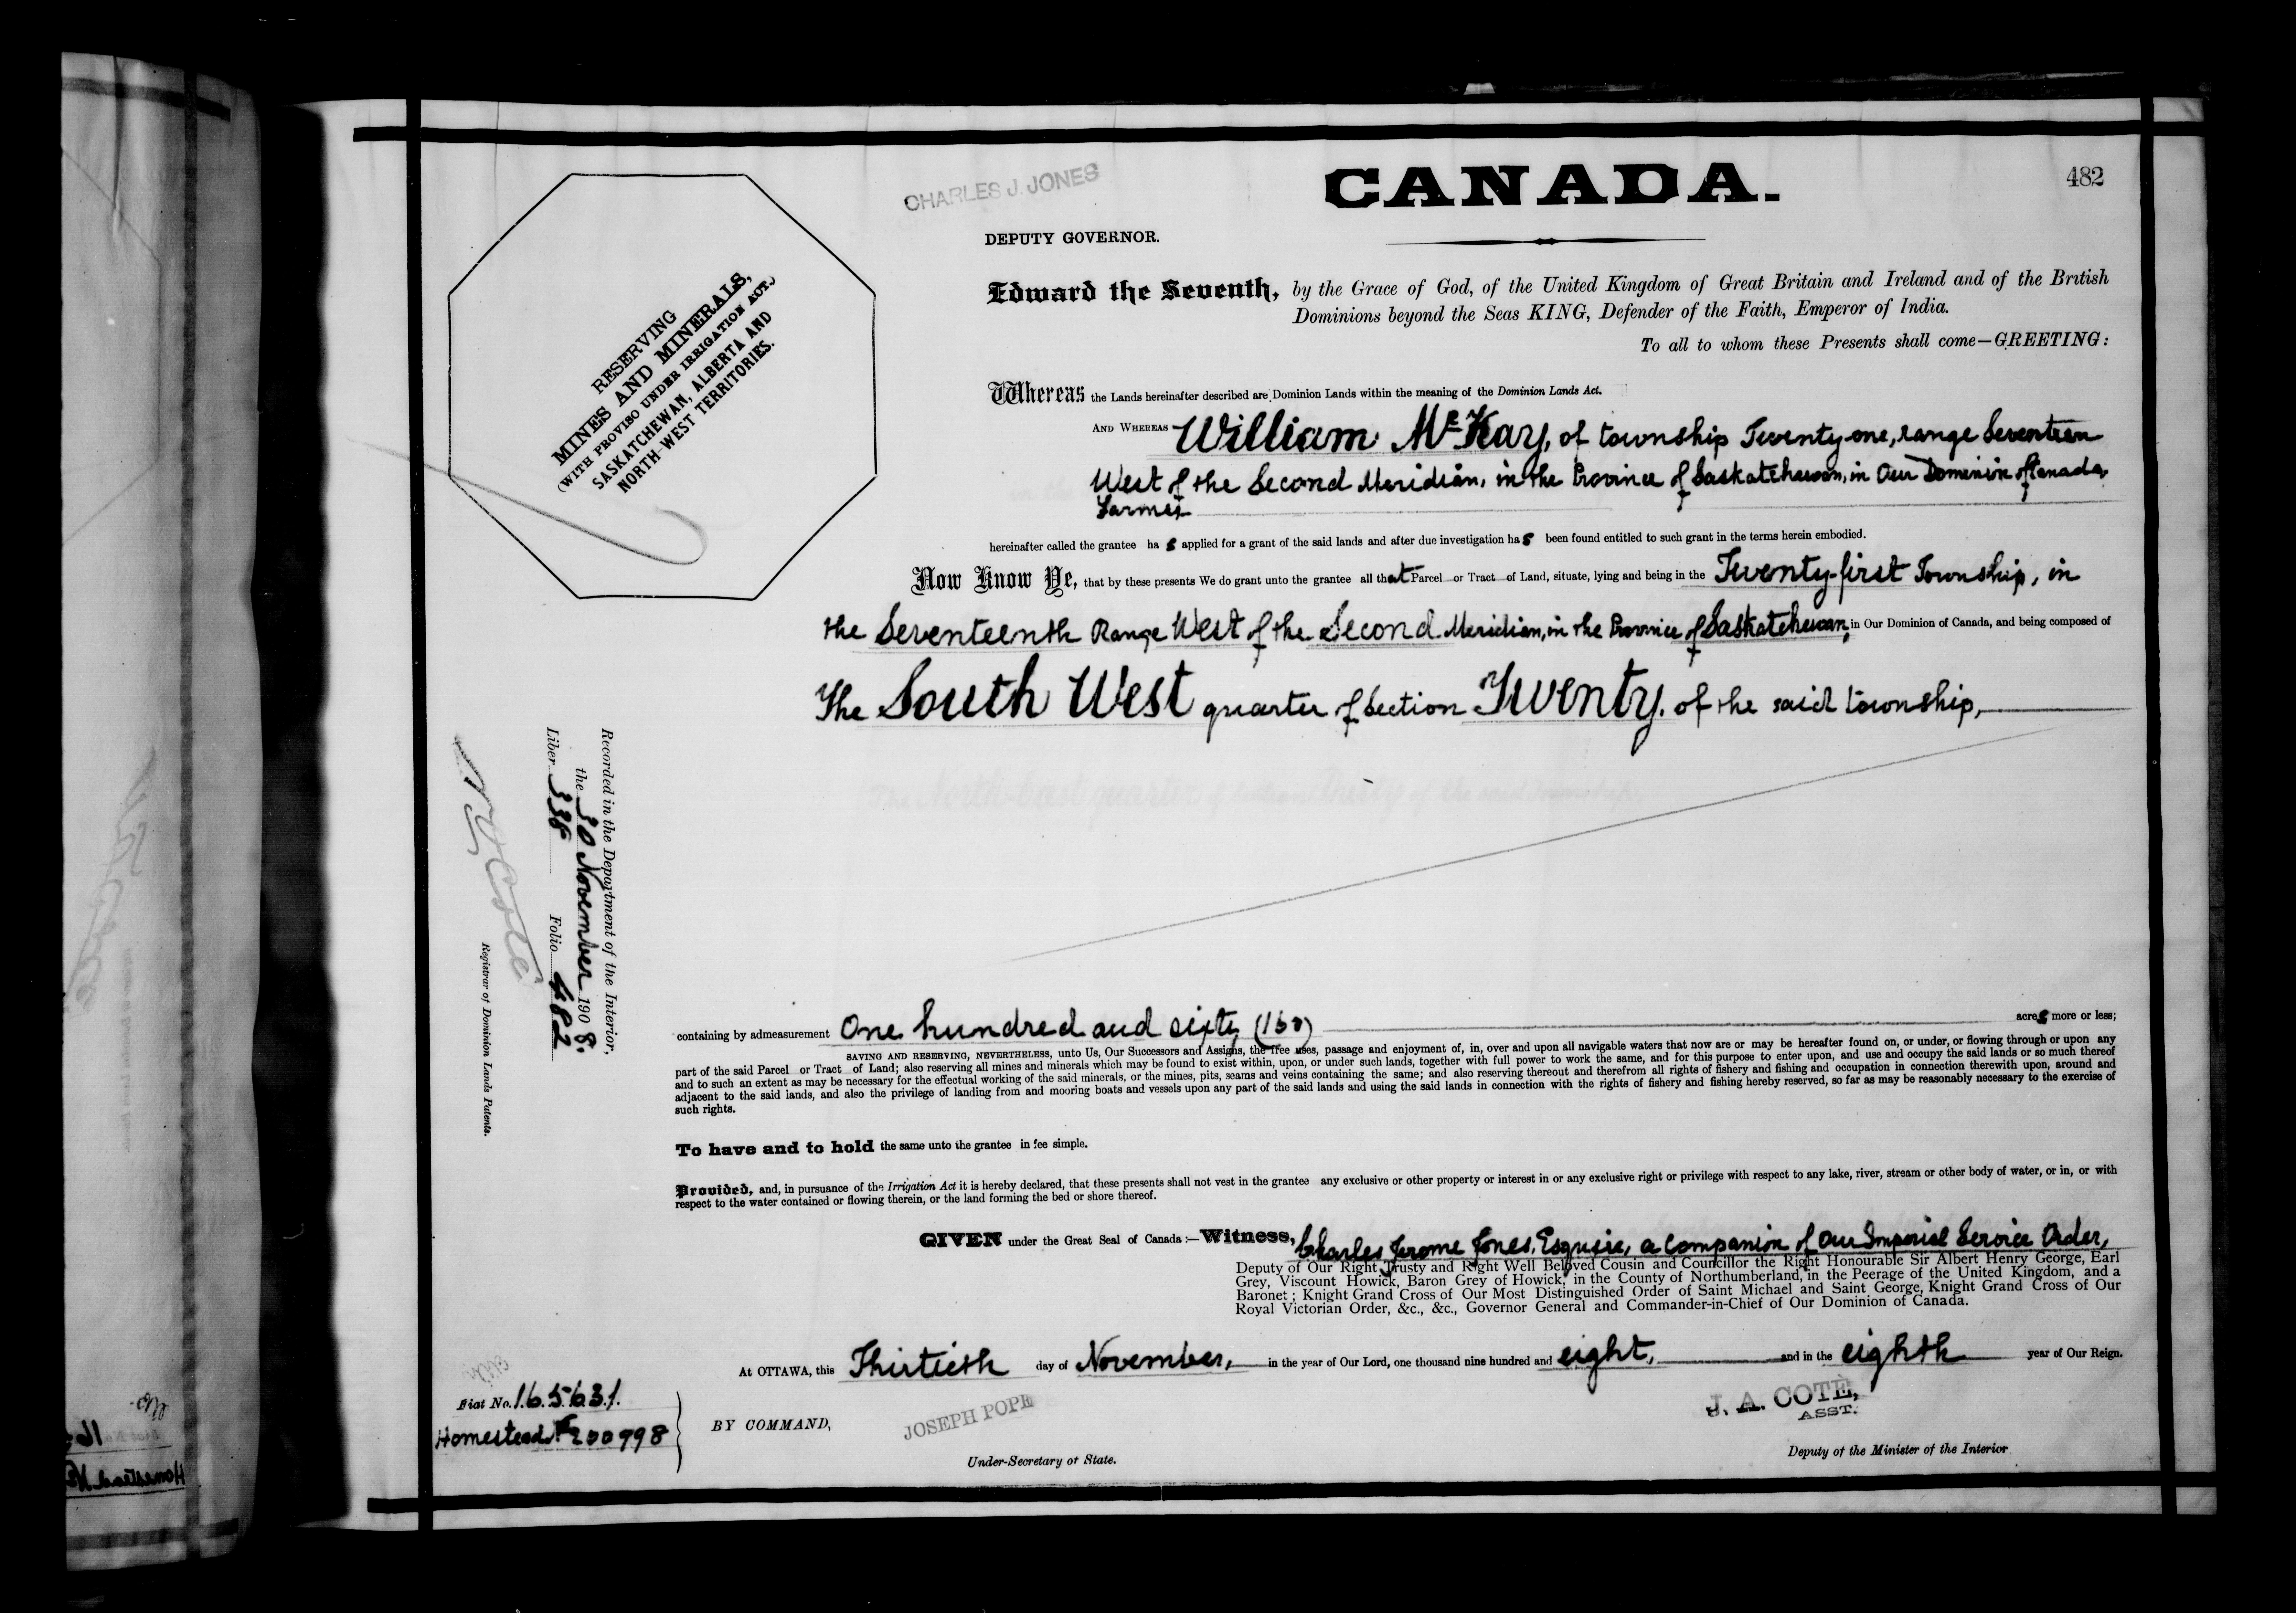 482
CHARLES J. JONES
CANADA.
DEPUTY GOVERNOR.
RESERVING
MINES AND MINERALS,
(WITH PROVISO UNDER IRRIGATION ACT.)
SASKATCHEWAN, ALBERTA AND
NORTH-WEST TERRITORIES.
Edward the Seventh, by the Grace of God, of the United Kingdom of Great Britain and Ireland and of the British
Dominions beyond the Seas KING, Defender of the Faith, Emperor of India.
To all to whom these Presents shall come—GREETING:
Whereas the Lands hereinafter described are Dominion Lands within the meaning of the Dominion Lands Act.
AND WHEREAS William McKay, of township Twenty-one, range Seventeen
West of the Second Meridian, in the Province of Saskatchewan, in Our Dominion of Canada,
Farmer
hereinafter called the grantee has applied for a grant of the said lands and after due investigation has been found entitled to such grant in the terms herein embodied.
Now Know Ye, that by these presents We do grant unto the grantee all that Parcel or Tract of Land, situate, lying and being in the Twenty-first Township, in
the Seventeenth Range West of the Second Meridian, in the Province of Saskatchewan, in Our Dominion of Canada, and being composed of
The South West quarter of Section Twenty, of the said township,
containing by admeasurement One hundred and sixty (160) acres more or less;
SAVING AND RESERVING, NEVERTHELESS, unto Us, Our Successors and Assigns, the free uses, passage and enjoyment of, in, over and upon all navigable waters that now are or may be hereafter found on, or under, or flowing through or upon any
part of the said Parcel or Tract of Land; also reserving all mines and minerals which may be found to exist within, upon, or under such lands, together with full power to work the same, and for this purpose to enter upon, and use and occupy the said lands or so much thereof
and to such an extent as may be necessary for the effectual working of the said minerals, or the mines, pits, seams and veins containing the same; and also reserving thereout and therefrom all rights of fishery and fishing and occupation in connection therewith upon, around and
adjacent to the said lands, and also the privilege of landing from and mooring boats and vessels upon any part of the said lands and using the said lands in connection with the rights of fishery and fishing hereby reserved, so far as may be reasonably necessary to the exercise of
such rights.
To have and to hold the same unto the grantee in fee simple.
Provided, and, in pursuance of the Irrigation Act it is hereby declared, that these presents shall not vest in the grantee any exclusive or other property or interest in or any exclusive right or privilege with respect to any lake, river, stream or other body of water, or in, or with
respect to the water contained or flowing therein, or the land forming the bed or shore thereof.
GIVEN under the Great Seal of Canada:—Witness, Charles Jerome Jones, Esquire, a Companion of Our Imperial Service Order,
Deputy of Our Right Trusty and Right Well Beloved Cousin and Councillor the Right Honourable Sir Albert Henry George, Earl
Grey, Viscount Howick, Baron Grey of Howick, in the County of Northumberland, in the Peerage of the United Kingdom, and a
Baronet; Knight Grand Cross of Our Most Distinguished Order of Saint Michael and Saint George, Knight Grand Cross of Our
Royal Victorian Order, &c., &c., Governor General and Commander-in-Chief of Our Dominion of Canada.
At OTTAWA, this Thirtieth day of November, in the year of Our Lord, one thousand nine hundred and eight, and in the eighth year of Our Reign.
Fiat No. 165631.
Homestead No 200998
BY COMMAND,
JOSEPH POPE
Under-Secretary of State.
J. A. COTÉ,
ASST.
Deputy of the Minister of the Interior
Recorded in the Department of the Interior,
the 30 November 1908.
Liber 338 Folio 482
N O Coté
Registrar of Dominion Lands Patents.